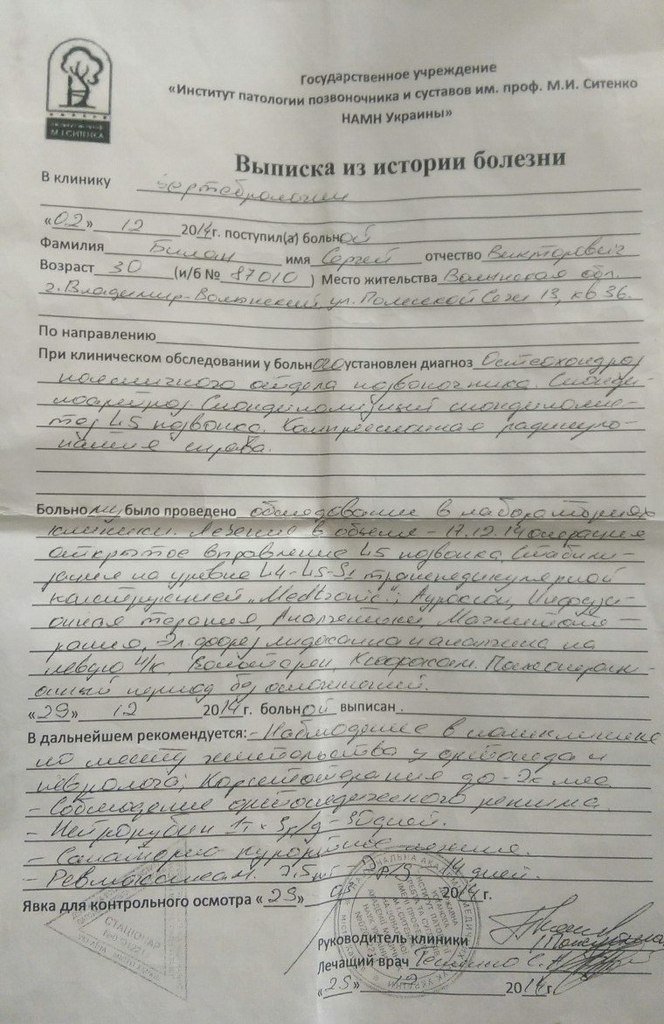 М.І.СИТЕНКА
Государственное учреждение
«Институт патологии позвоночника и суставов им. проф. М.И. Ситенко
НАМН Украины»
Выписка из истории болезни
В клинику вертебрологии
«02» 12 2014г. поступил(а) больной
Фамилия Билан имя Сергей отчество Викторович
Возраст 30 (и/б № 87010) Место жительства Волынская обл.
г. Владимир-Волынский ул. Полесской Сечи 13, кв 36.
По направлению
При клиническом обследовании у больного установлен диагноз Остеохондроз
поясничного отдела позвоночника. Спонди-
лоартроз. Спондилолизный спондилолис-
тез L5 позвонка. Компрессионная радикуло-
патия справа.
Больному было проведено обследование в лабораториях
клиники. Лечение в объеме - 17.12.14 операция
открытое вправление L5 позвонка. Стабили-
зация на уровне L4-L5-S1 транспедикулярной
конструкцией „Medtronic";
терапия, Анальгетики, Магнитоте-
рапия, Эл. форез лидокаина и анальгина на
левую н/к.
период без осложнений.
«29» 12 2014г. больной выписан.
В дальнейшем рекомендуется: - Наблюдение в поликлинике
по месту жительства у ортопеда и
невролога; Корсетотерапия до
- Соблюдение ортопедического режима.
- Нейрорубин 1т x 3р/д - 30 дней.
- Санаторно курортное лечение.
- 14 дней.
Явка для контрольного осмотра « 2014г.
СТАЦІОНАР
Руководитель клиники
Лечащий врач
12 2014г.